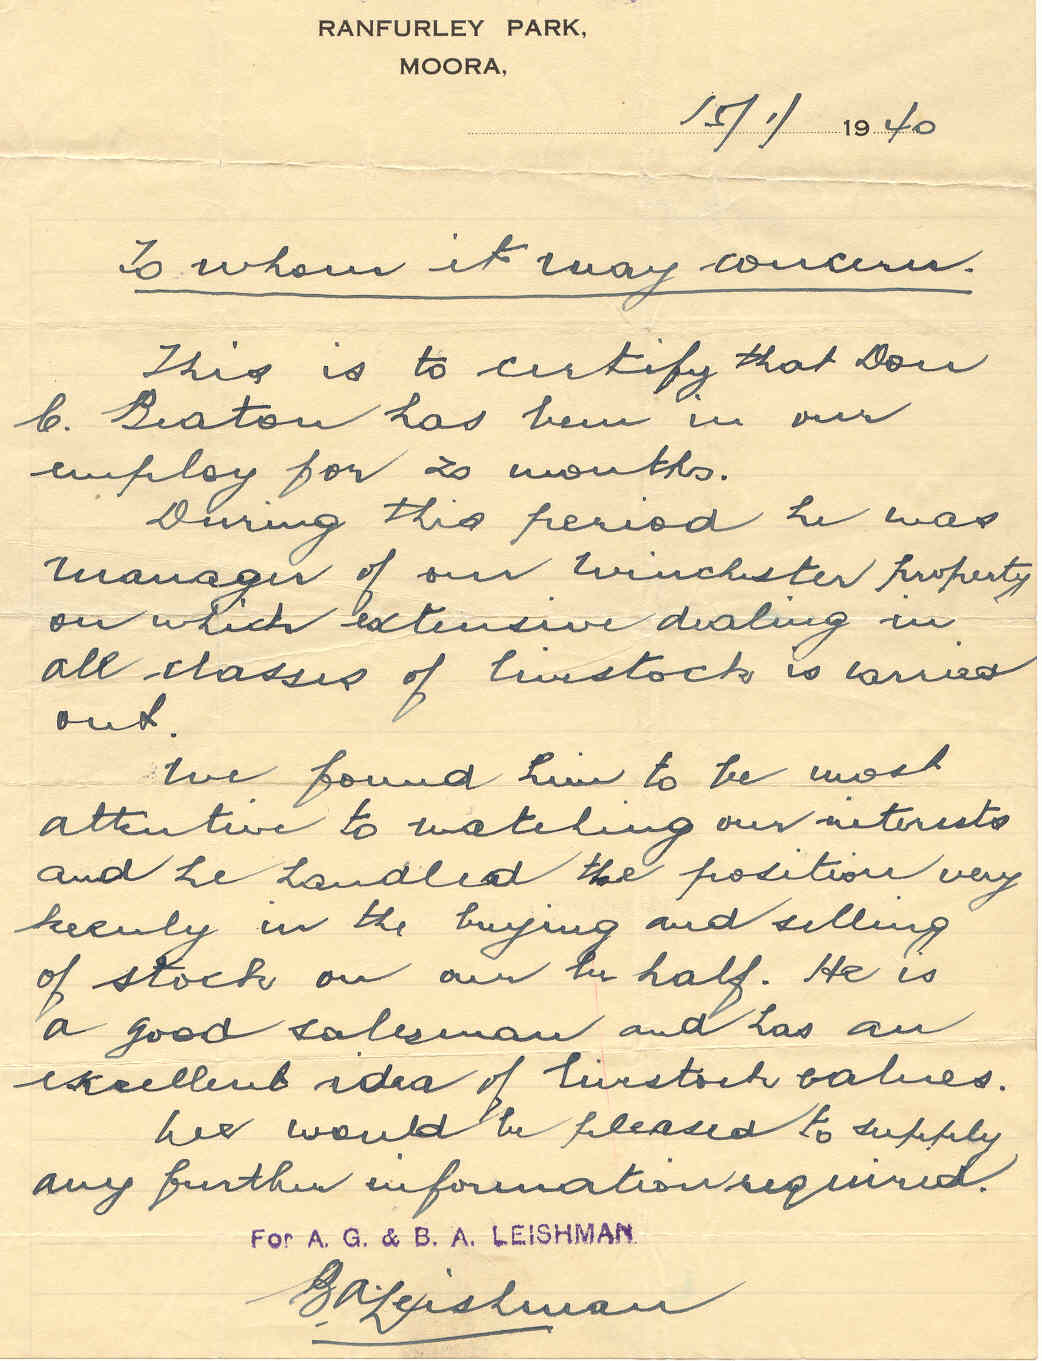 RANFURLEY PARK,
MOORA,
15/1/ 1940
To whom it may concern.
This is to certify that Don
C. Beaton has been in our
employ for 20 months.
During this period he was
manager of our Winchester property
on which extensive dealing in
all classes of livestock is carried
out.
We found him to be most
attentive to watching our interests
and he handled the position very
keenly in the buying and selling
of stock on our be half. He is
a good salesman and has an
excellent idea of livestock values.
We would be pleased to supply
any further information required.
For A. G. & B. A. LEISHMAN
B A Leishman